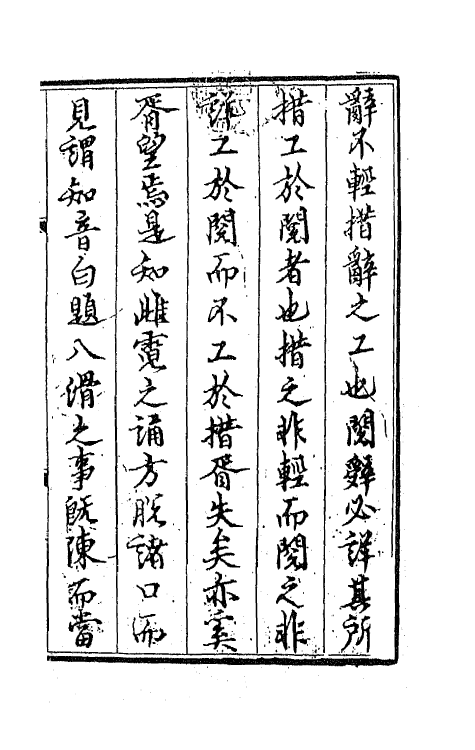 辭不輕措辭之工也閱辭必詳其所
措工於閱者也措之非輕而閱之非
詳工於閱而不工於措胥失矣亦奚
胥望焉是知雌霓之誦方脫諸口而
見謂知音白題八滑之事既陳而當